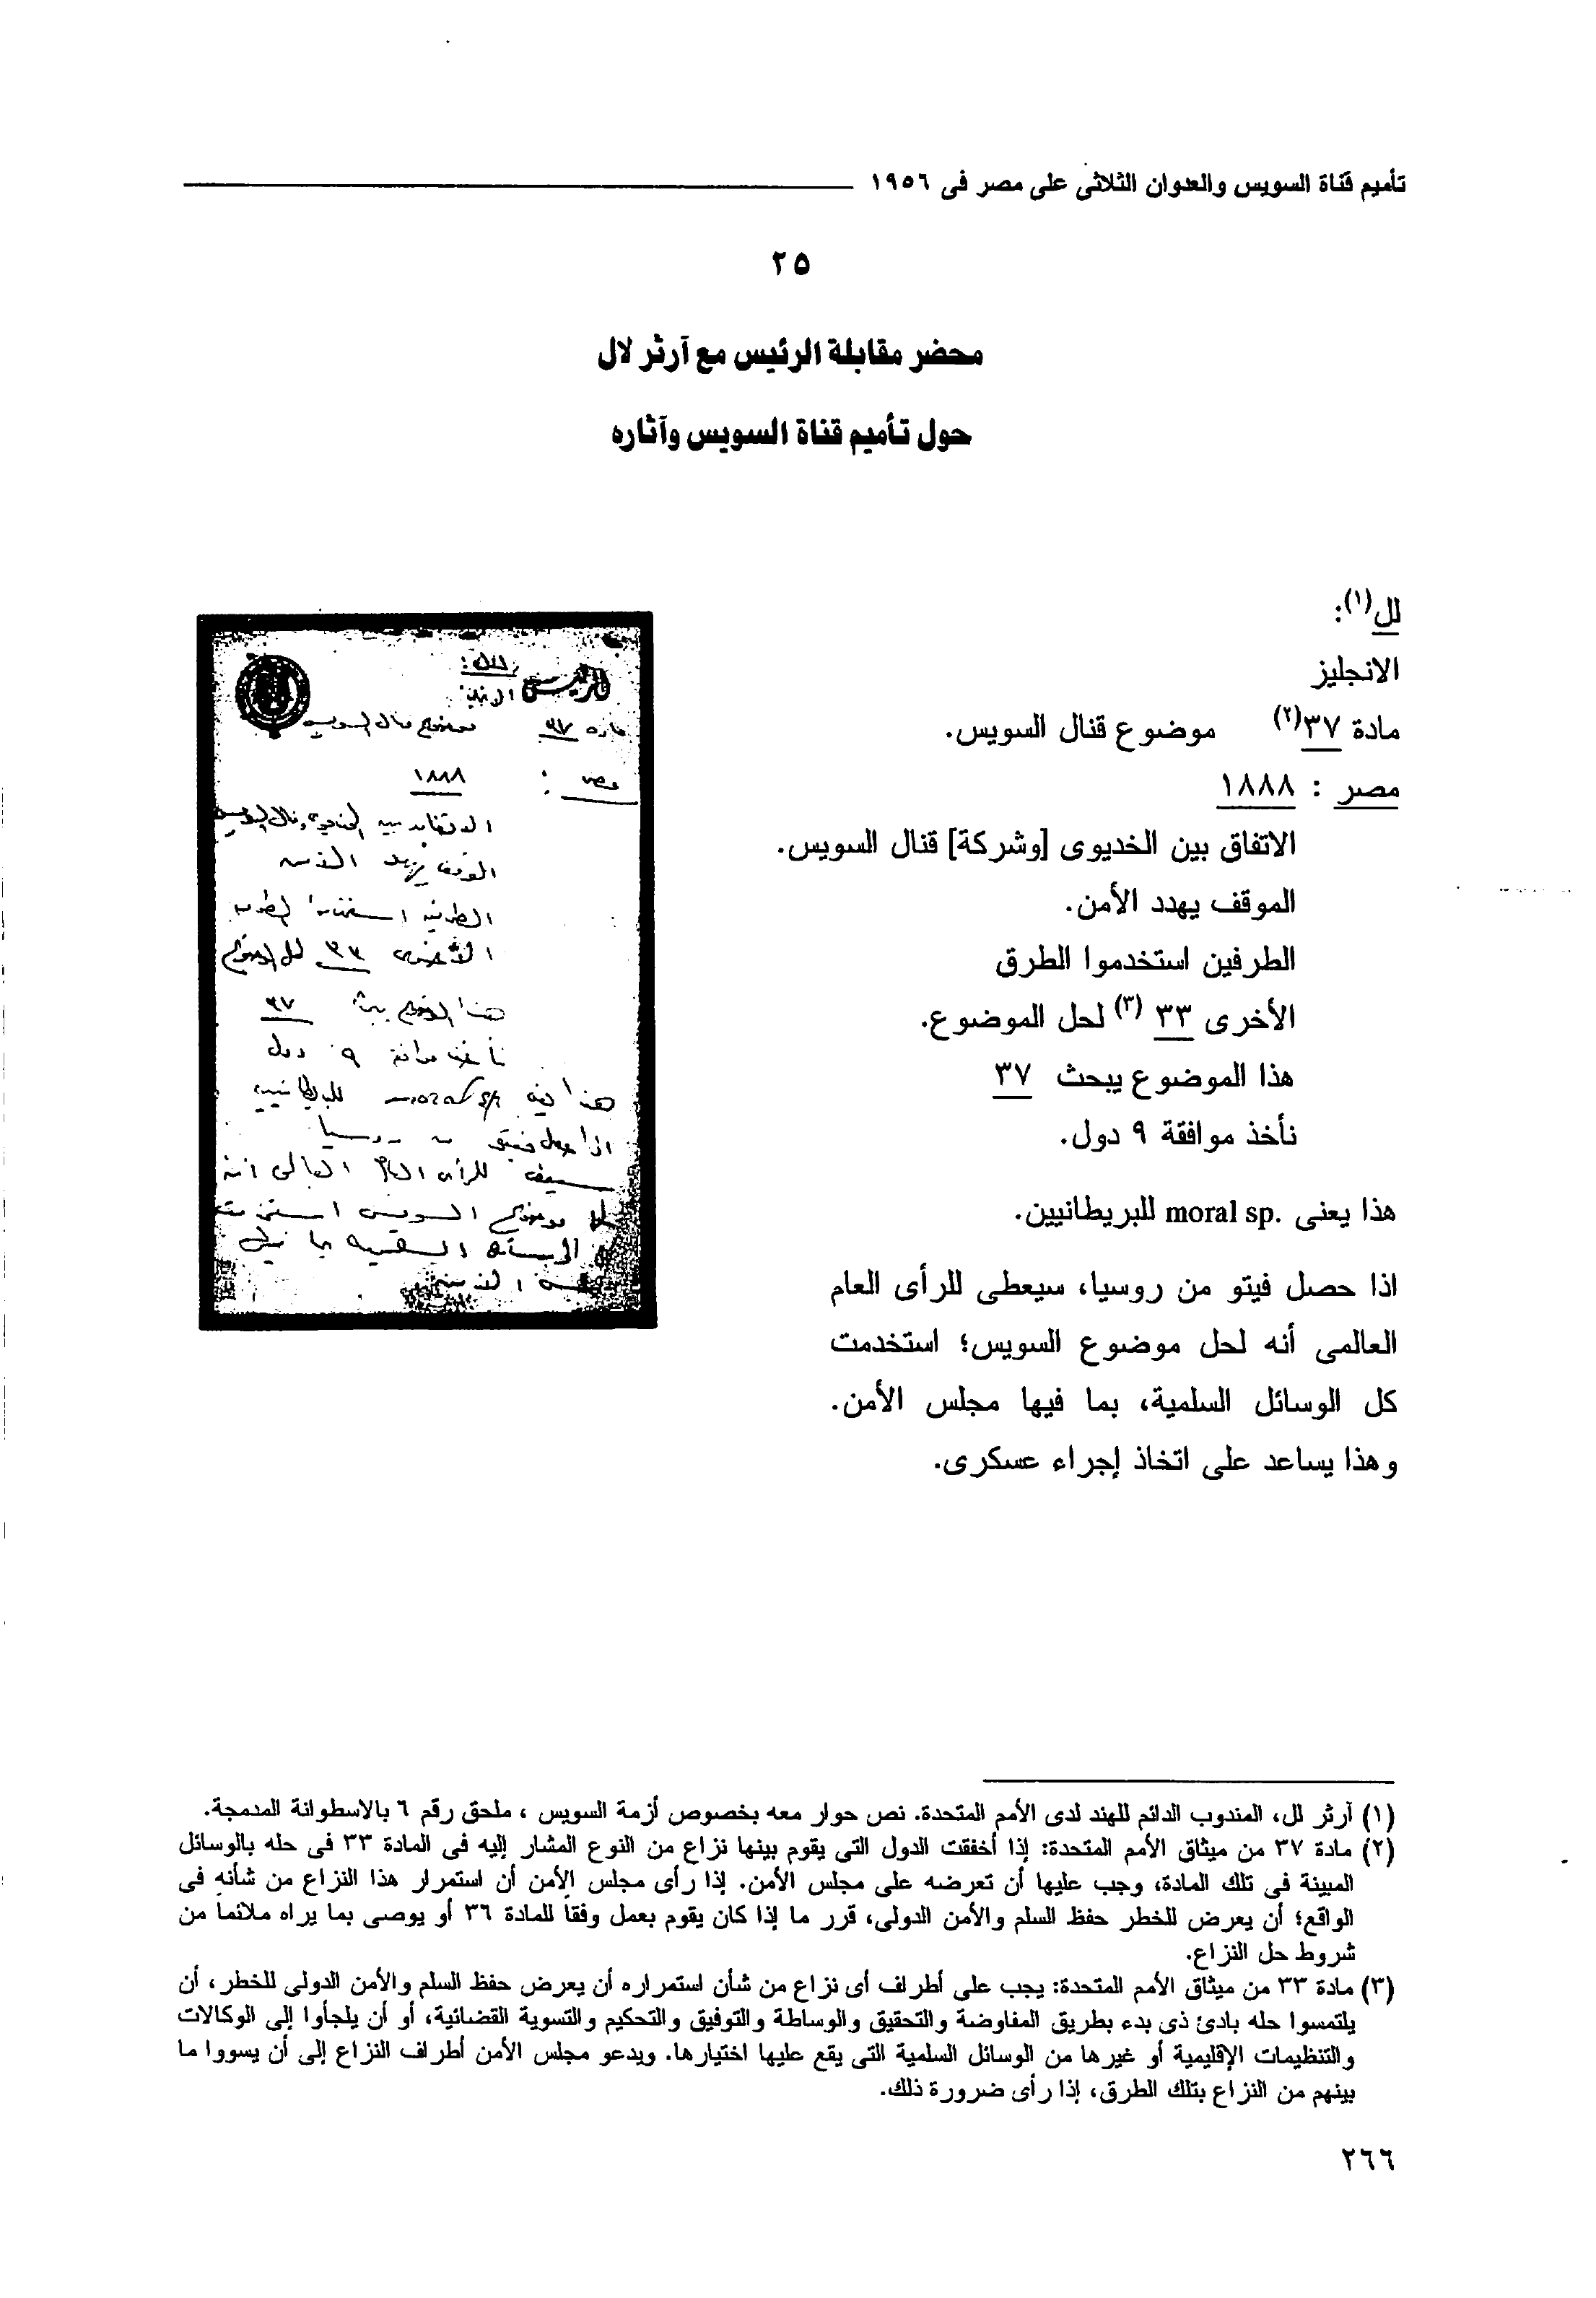 تأميم قناة السويس والعدوان الثلاثى على مصر فى ١٩٥٦
٢٥
محضر مقابلة الرئيس مع آرثر لال
حول تأميم قناة السويس وآثاره
لل(١):
الانجليز
مادة ٣٧(٢) موضوع قنال السويس.
مصر : ١٨٨٨
الاتفاق بين الخديوى [وشركة] قنال السويس.
الموقف يهدد الأمن.
الطرفين استخدموا الطرق
الأخرى ٣٣ (٣) لحل الموضوع.
هذا الموضوع يبحث ٣٧
نأخذ موافقة ٩ دول.
هذا يعنى .moral sp للبريطانيين.
اذا حصل فيتو من روسيا، سيعطى للرأى العام
العالمى أنه لحل موضوع السويس؛ استخدمت
كل الوسائل السلمية، بما فيها مجلس الأمن.
وهذا يساعد على اتخاذ إجراء عسكرى.
الرئيس
مادة ٣٧ موضوع قنال السويس
مصر : ١٨٨٨
الموقف يهدد الأمن
الأخرى ٣٣ لحل الموضوع
هذا الموضوع يبحث ٣٧
نأخذ موافقة ٩ دول
(١) آرثر لل، المندوب الدائم للهند لدى الأمم المتحدة. نص حوار معه بخصوص أزمة السويس ، ملحق رقم ٦ بالاسطوانة المدمجة.
(٢) مادة ٣٧ من ميثاق الأمم المتحدة: إذا أخفقت الدول التى يقوم بينها نزاع من النوع المشار إليه فى المادة ٣٣ فى حله بالوسائل
المبينة فى تلك المادة، وجب عليها أن تعرضه على مجلس الأمن. إذا رأى مجلس الأمن أن استمرار هذا النزاع من شأنه فى
الواقع؛ أن يعرض للخطر حفظ السلم والأمن الدولى، قرر ما إذا كان يقوم بعمل وفقاً للمادة ٣٦ أو يوصى بما يراه ملائماً من
شروط حل النزاع.
(٣) مادة ٣٣ من ميثاق الأمم المتحدة: يجب على أطراف أى نزاع من شأن استمراره أن يعرض حفظ السلم والأمن الدولى للخطر، أن
يلتمسوا حله بادئ ذى بدء بطريق المفاوضة والتحقيق والوساطة والتوفيق والتحكيم والتسوية القضائية، أو أن يلجأوا إلى الوكالات
والتنظيمات الإقليمية أو غيرها من الوسائل السلمية التى يقع عليها اختيارها. ويدعو مجلس الأمن أطراف النزاع إلى أن يسووا ما
بينهم من النزاع بتلك الطرق، إذا رأى ضرورة ذلك.
٢٦٦